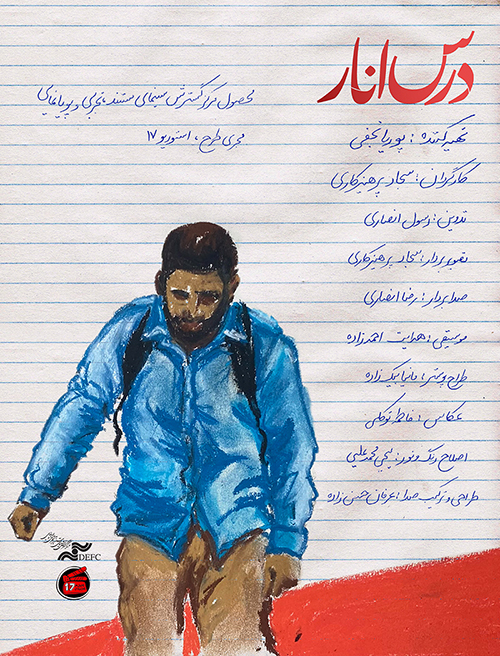 درس انار
محصول مرکز گسترش سینمای مستند، تجربی و پویانمایی
مجری طرح: استودیو ۱۷
تهیه‌کننده: پوریا نجفی
کارگردان: سجاد پرهیزکاری
تدوین: رسول انصاری
تصویربردار: سجاد پرهیزکاری
صدابردار: رضا انصاری
موسیقی: هدایت احمدزاده
طراح پوستر: مانیا بیک‌زاده
عکاس: فاطمه توکلی
اصلاح رنگ و نور: یحیی محمدعلیی
طراحی و ترکیب صدا: عرفان حسن‌زاده
DEFC
17